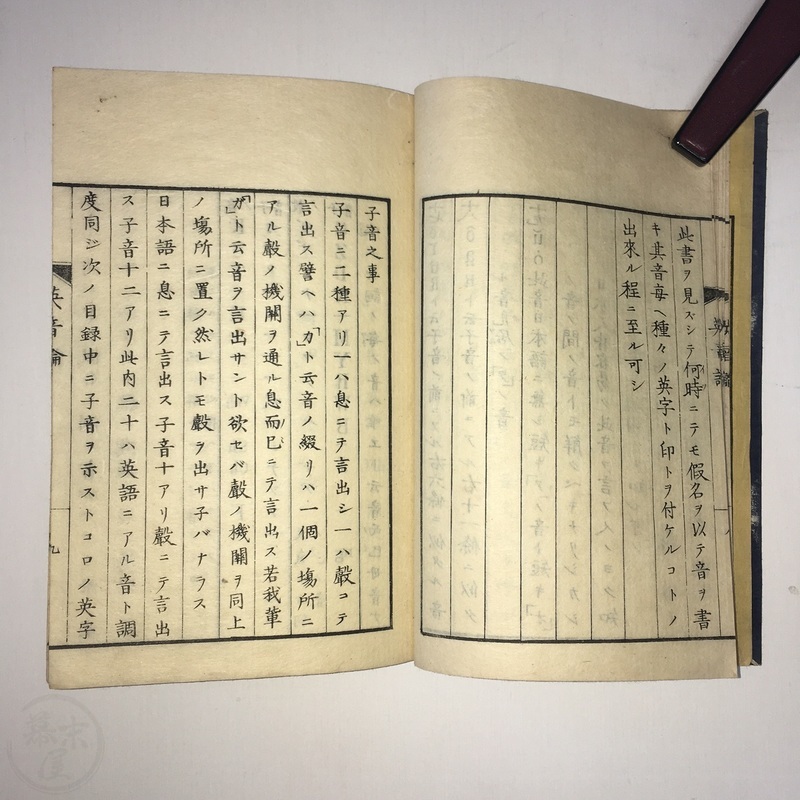 此書ヲ見ズシテ何時ニテモ假名ヲ以テ音ヲ書
キ其音每ヘ種々ノ英字ト印トヲ付ケルコトノ
出來ル程ニ至ル可シ
子音之事
子音ニ二種アリ一ハ息ニテ言出シ一ハ聲コテ
言出ス譬ヘハ「カ」ト云音ノ綴リハ一個ノ場所ニ
アル聲ノ機關ヲ通ル息而巳ニテ言出ス若我輩
「ガ」ト云音ヲ言出サント欲セバ聲ノ機關ヲ同上
ノ塲所ニ置ク然レトモ聲ヲ出サ子バナラス
日本語ニ息ニテ言出ス子音十アリ聲ニテ言出
ス子音十二アリ此内二十ハ英語ニアル音ト調
度同ジ次ノ目録中ニ子音ヲ示ストコロノ英字
英音論
九